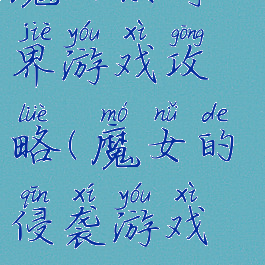 jiè yóu xì gōng
界游戏攻
lüè mó nǚ de
略(魔女的
qīn xí yóu xì
侵袭游戏